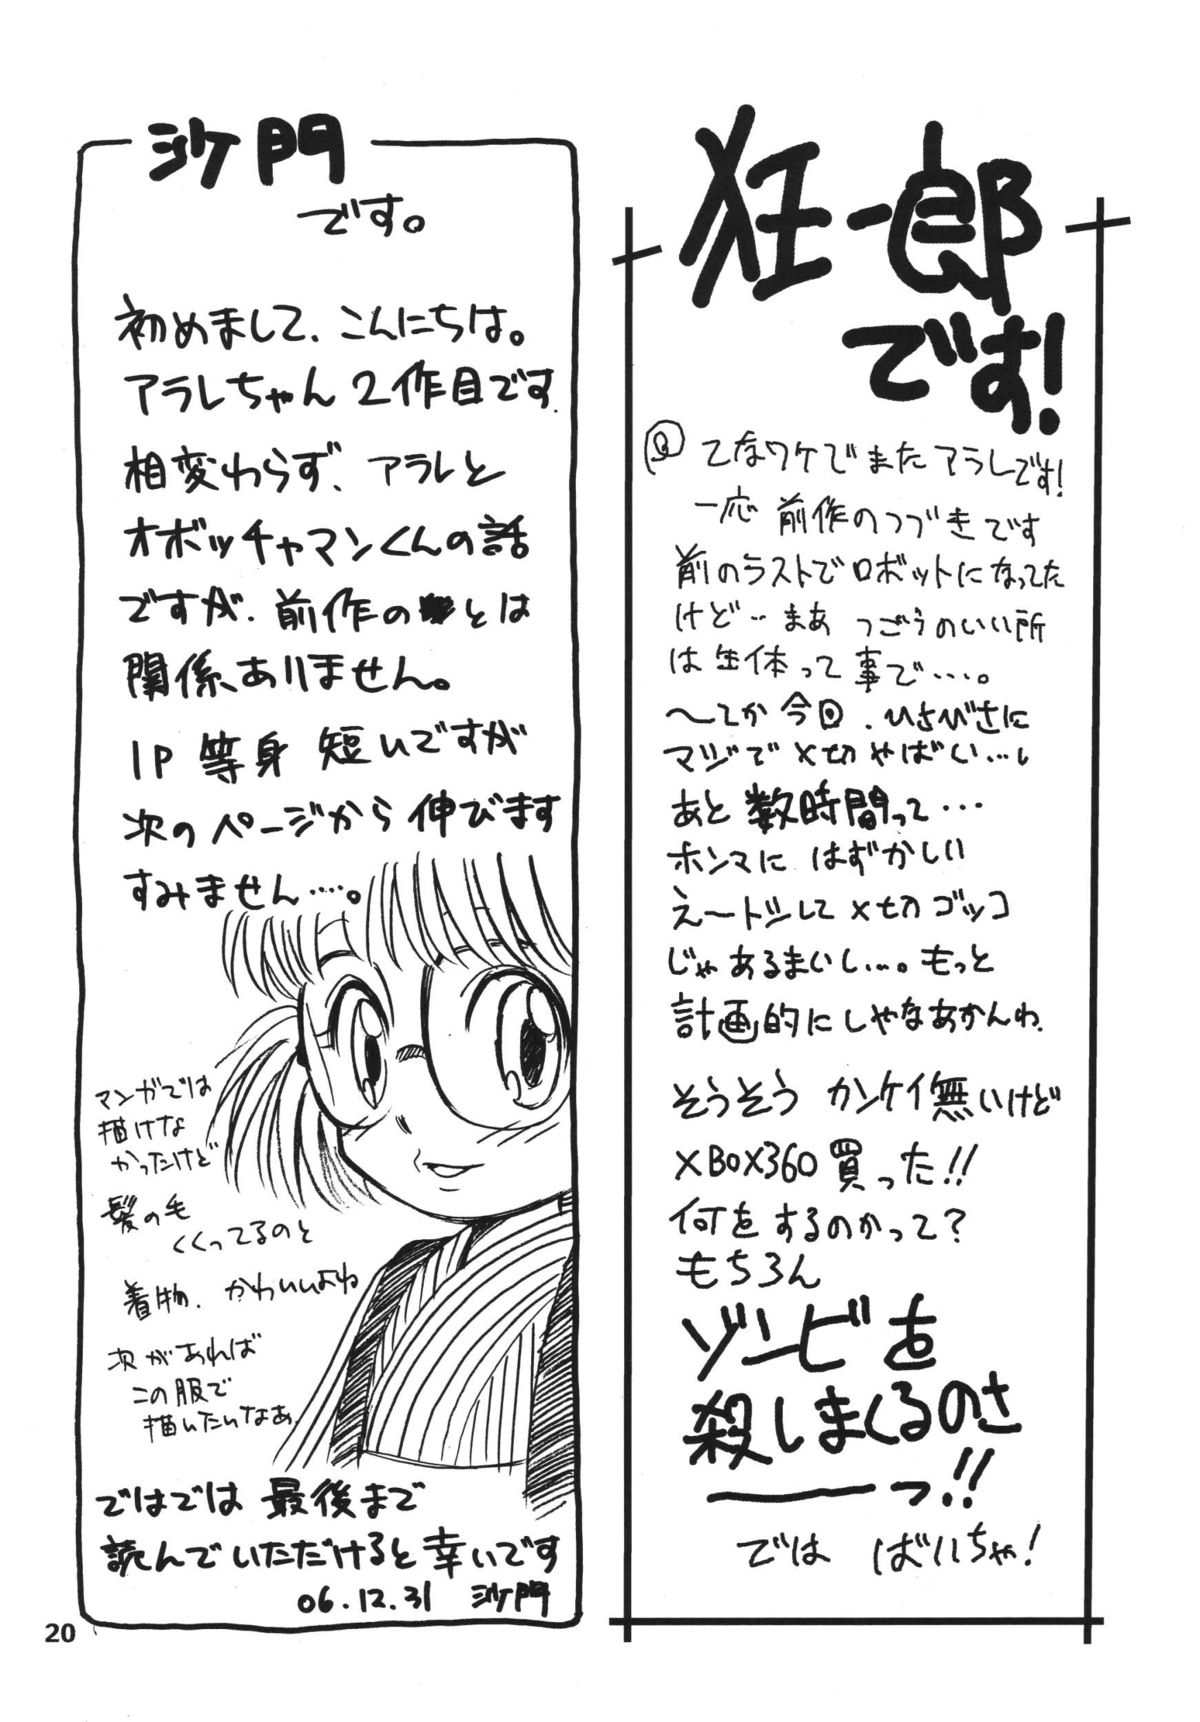 狂一郎
です!
てなワケでまたアラレです!
一応 前作のつづきです
前のラストでロボットになってた
けど‥まあ つごうのいい所
は生体って事で‥‥。
〜てか今回、ひさびさに
マジで〆切やばい…し
あと数時間って…
ホンマに はずかしい
え〜トシして〆切ゴッコ
じゃあるまいし…。もっと
計画的にしゃなあかんわ.
そうそう カンケイ無いけど
XBOX360買った!!
何をするのかって?
もちろん
ゾンビを
殺しまくるのさ
――っ!!
では ばいちゃ!
沙門
です。
初めまして、こんにちは。
アラレちゃん 2作目です.
相変わらず、アラレと
オボッチャマンくんの話
ですが、前作のとは
関係、ありません。
1P 等身 短いですが
次のページから伸びます
すみません‥‥。
マンガでは
描けな
かったけど
髪の毛
くくってるのと
着物、かわいいよね
次があれば
この服で
描いたいなぁ.
ではでは 最後まで
読んでいただけると幸いです
06.12.31 沙門
20